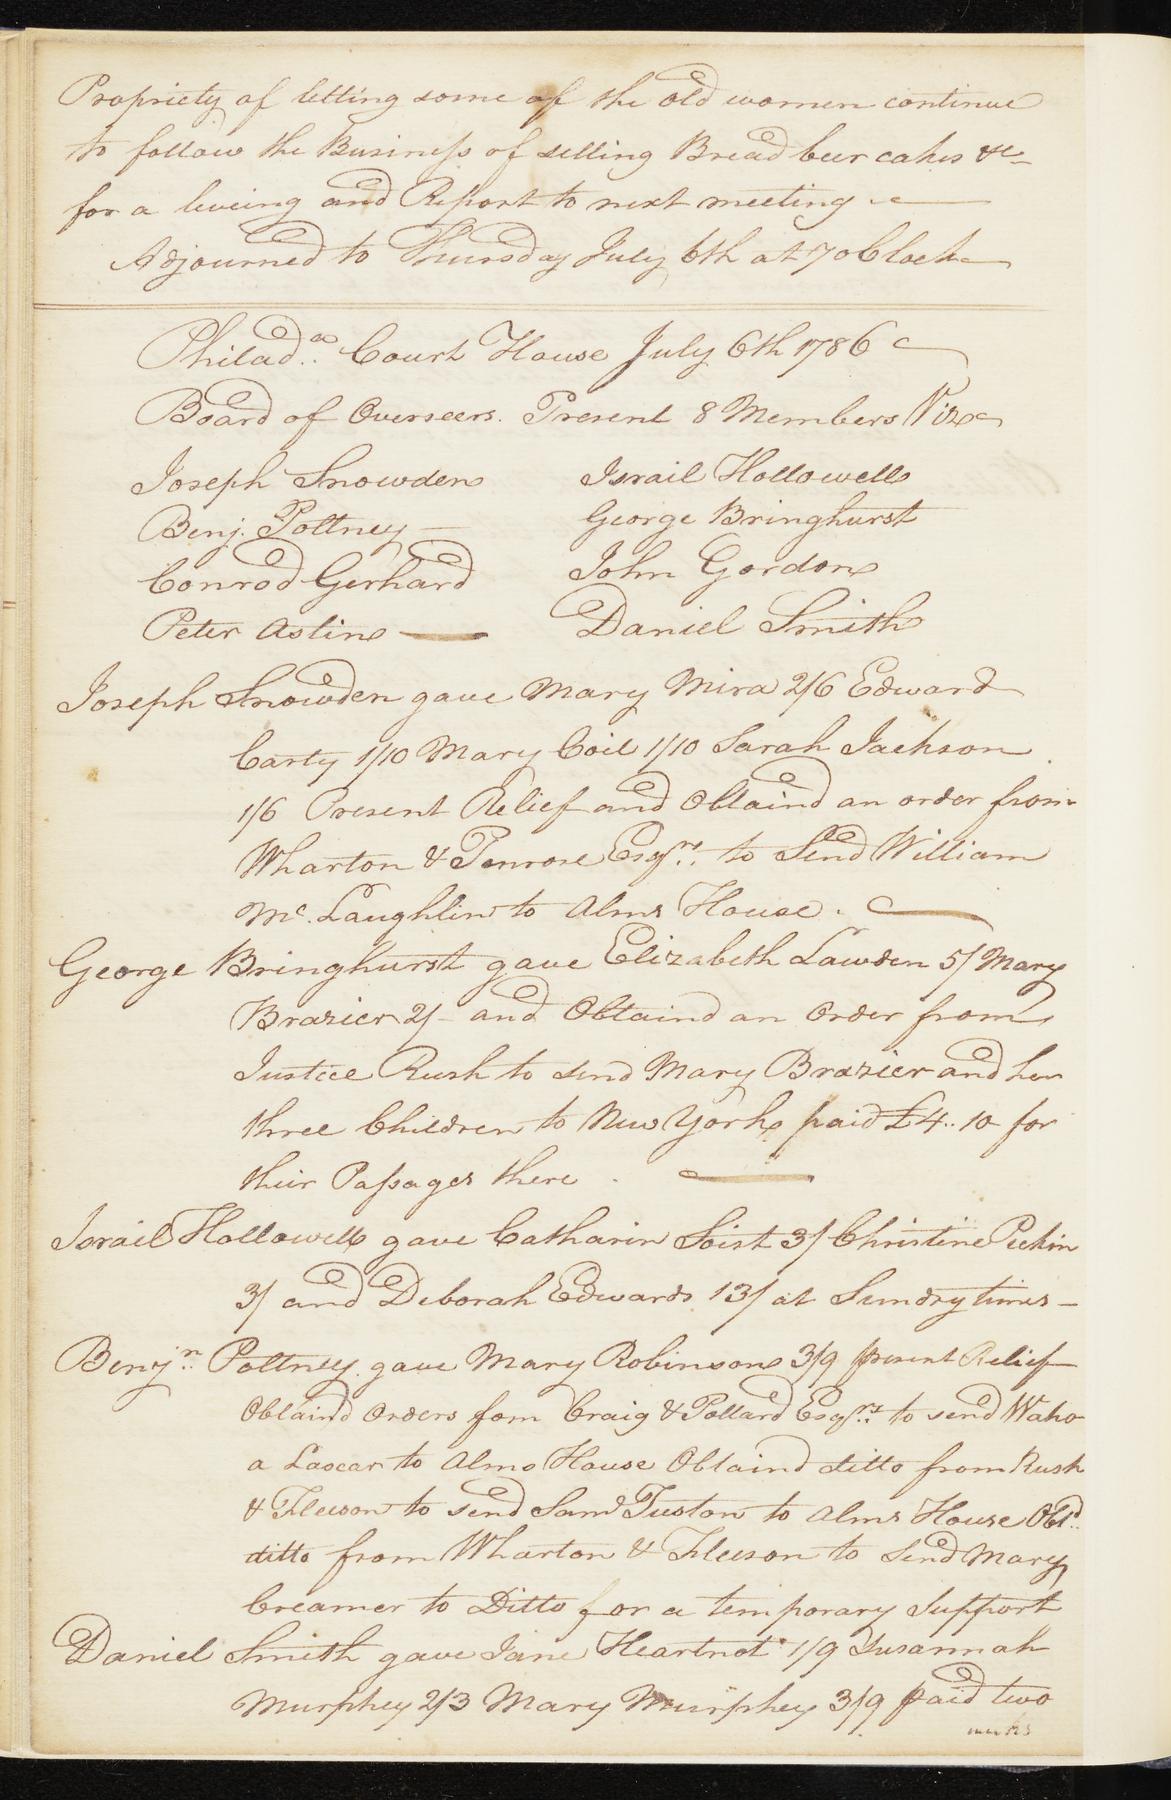 Propriety of letting some of the old women continue
to follow the Business of selling Bread beer cakes &c
for a liveing and Report to next meeting
Adjourned to Thursday July 6th at 7 oClock
Philad.a Court House July 6th 1786
Board of Overseers. Present 8 Members Viz
Joseph Snowden Israil Hollowell
Benj. Poltney George Bringhurst
Conrod Gerhard John Gordon
Peter Astin Daniel Smith
Joseph Snowden gave Mary Mira 2/6 Edward
Carty 1/10 Mary Coil 1/10 Sarah Jackson
1/6 Present Relief and Obtaind an order from
Wharton & Penrose Esqrs. to Send William
Mc. Laughlin to Alms House.
George Bringhurst gave Elizabeth Lawden 5/ Mary
Brazier 2/ and Obtaind an Order from
Justice Rush to send Mary Brazier and her
three Children to New York paid £4..10 for
their Passages there.
Israil Hollowell gave Catharin Soist 3/ Christine Peckin
3/ and Deborah Edwards 13/ at Sundry times
Benjn. Poltney gave Mary Robinson 3/9 present Relief
Obtaind Orders fom Craig & Pollard Esqrs. to send Waho
a Lascar to Alms House Obtaind ditto from Rush
& Fleeson to send Saml Tuston to Alms House Obtd.
ditto from Wharton & Fleeson to Send Mary
Creamer to Ditto for a temporary Support
Daniel Smith gave Jane Heartnot 1/9 Susannah
Murphey 2/3 Mary Murphey 3/9 paid two
weeks